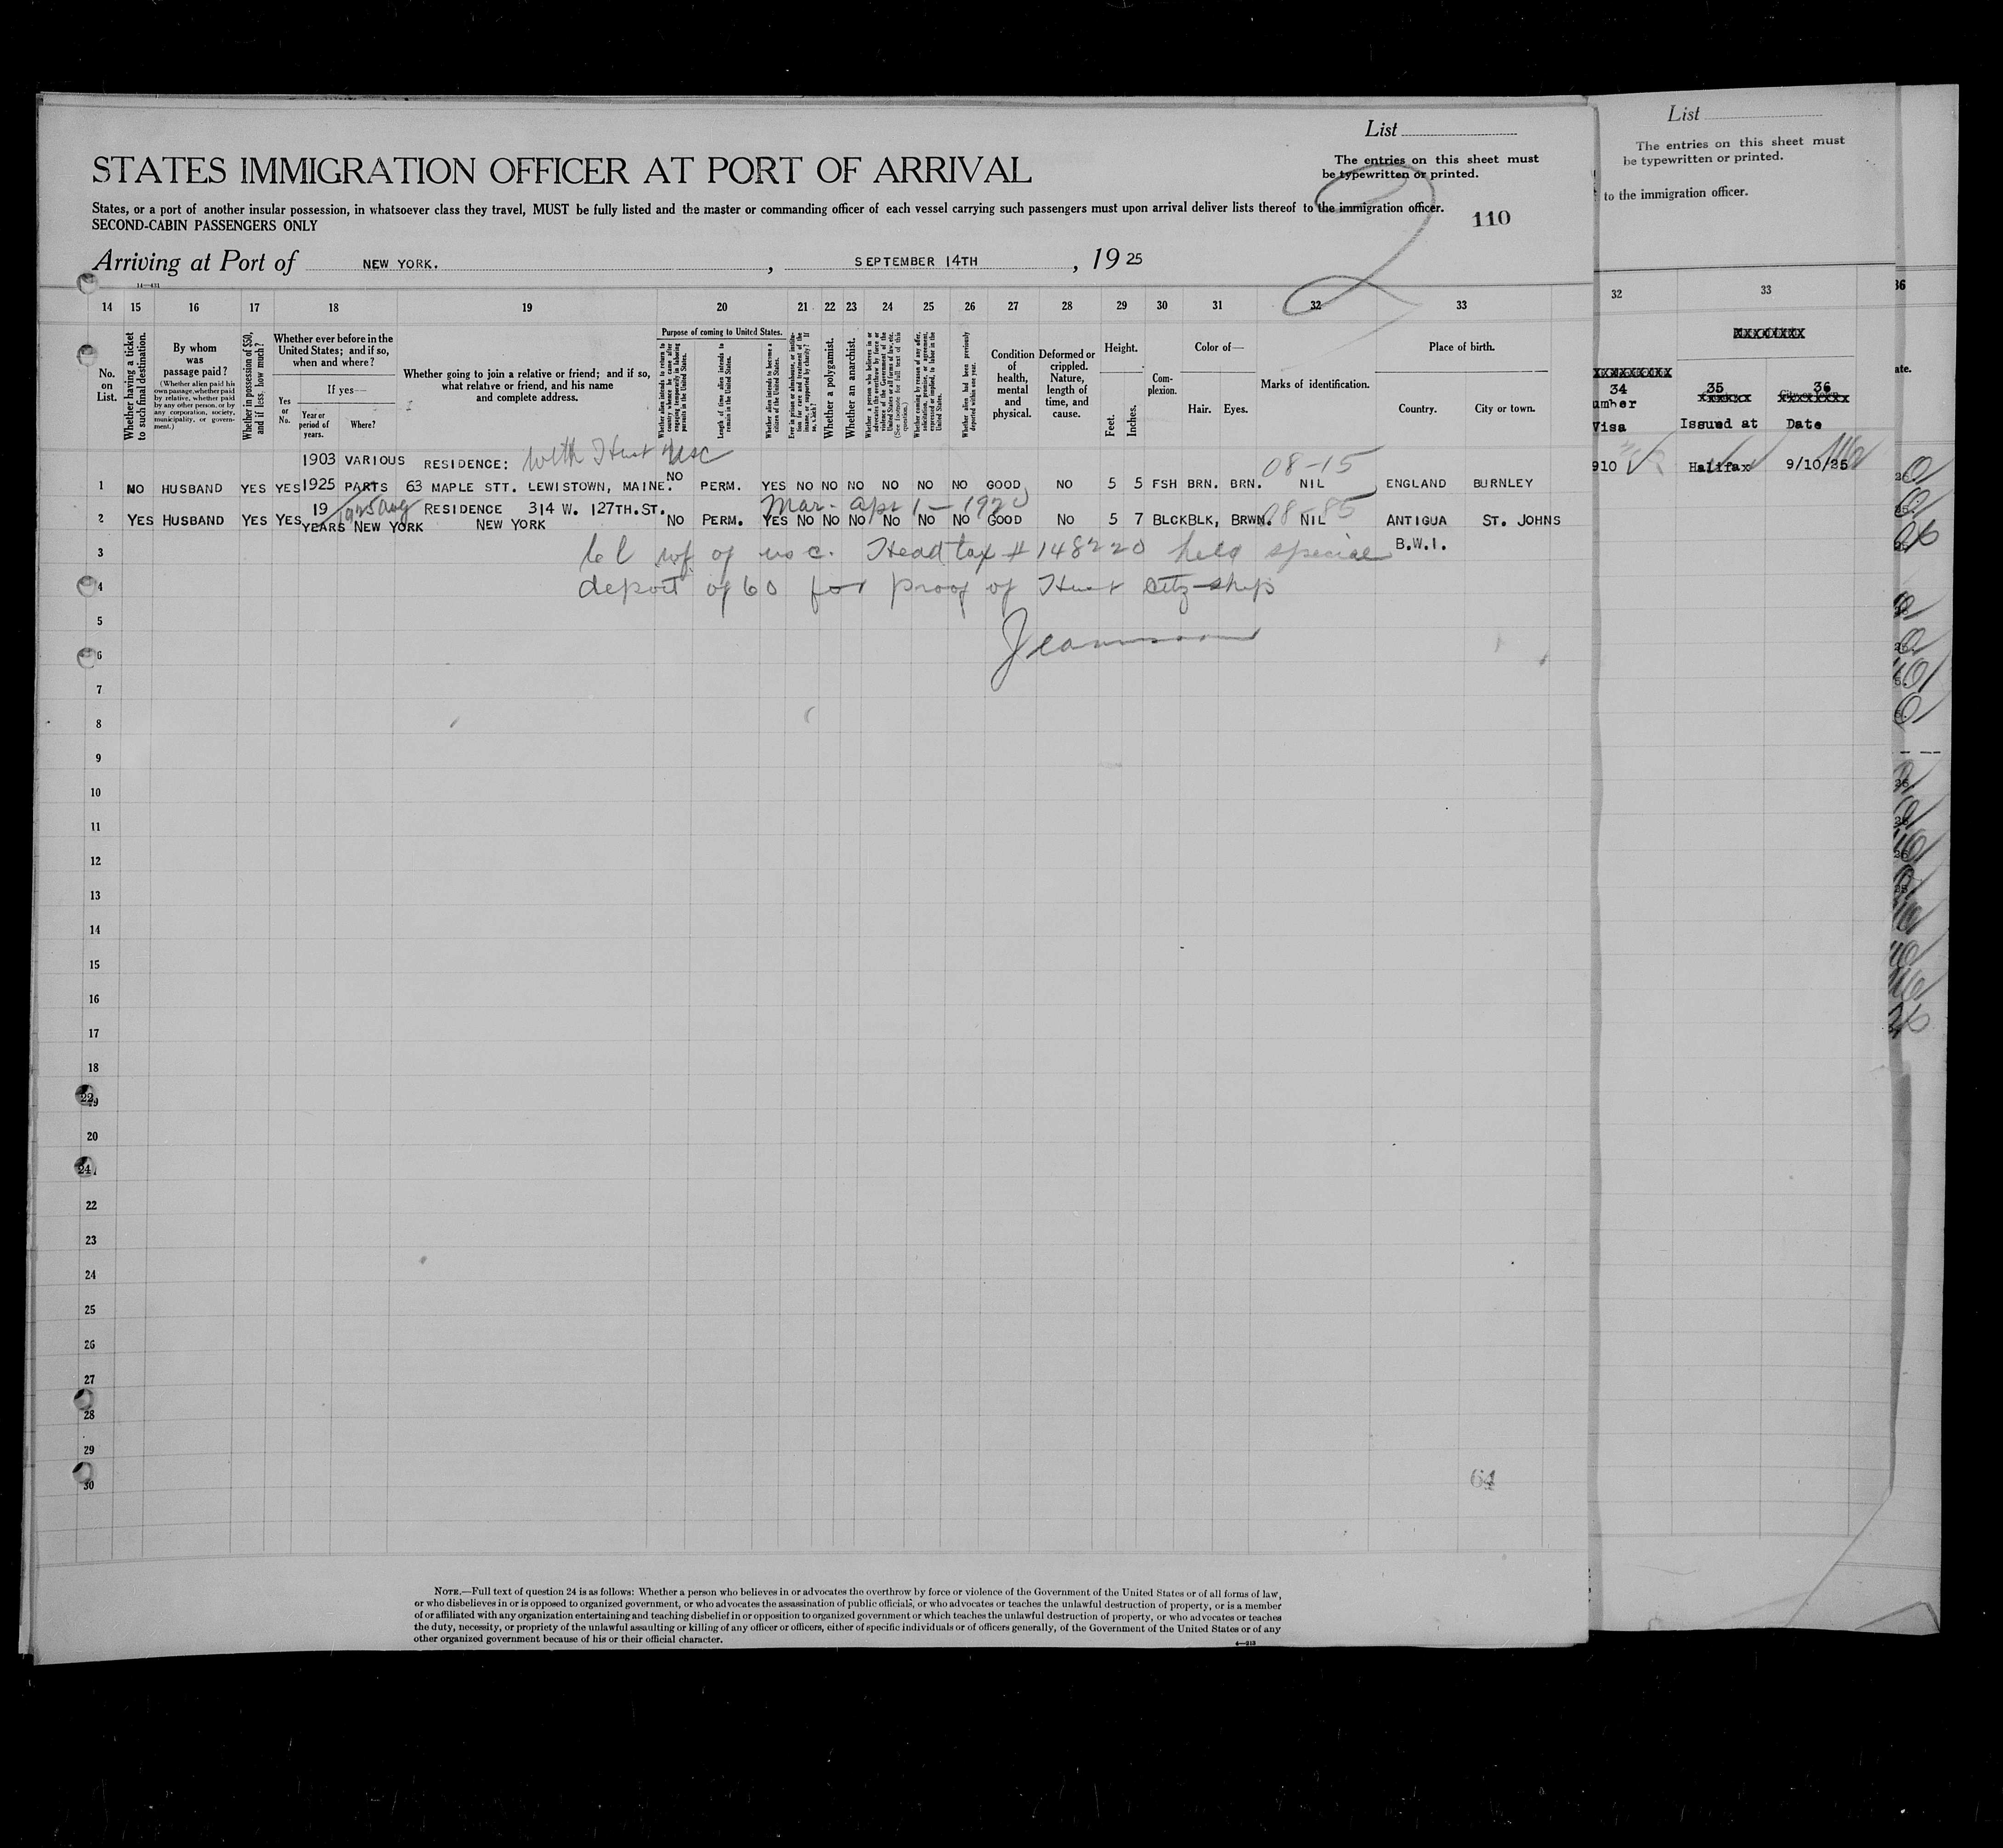 List
The entries on this sheet must
be typewritten or printed.
STATES IMMIGRATION OFFICER AT PORT OF ARRIVAL
States, or a port of another insular possession, in whatsoever class they travel, MUST be fully listed and the master or commanding officer of each vessel carrying such passengers must upon arrival deliver lists thereof to the immigration officer.
SECOND-CABIN PASSENGERS ONLY
110
2
Arriving at Port of NEW YORK. , SEPTEMBER 14TH , 19 25
14 15 16 17 18 19 20 21 22 23 24 25 26 27 28 29 30 31 32 33
No. on List.
Whether having a ticket to such final destination.
By whom was passage paid?
(Whether alien paid his own passage, whether paid by relative, whether paid by any other person, or by any corporation, society, municipality, or government.)
Whether in possession of $50, and if less, how much?
Whether ever before in the United States; and if so, when and where?
If yes—
Yes or No.
Year or period of years.
Where?
Whether going to join a relative or friend; and if so, what relative or friend, and his name and complete address.
Purpose of coming to United States.
Whether alien intends to return to country whence he came after engaging temporarily in laboring pursuits in the United States.
Length of time alien intends to remain in the United States.
Whether alien intends to become a citizen of the United States.
Ever in prison or almshouse, or institution for care and treatment of the insane, or supported by charity? If so, which?
Whether a polygamist.
Whether an anarchist.
Whether a person who believes in or advocates the overthrow by force or violence of the Government of the United States or all forms of law, etc. (See footnote for full text of this question.)
Whether coming by reason of any offer, solicitation, promise, or agreement, expressed or implied, to labor in the United States.
Whether alien had been previously deported within one year.
Condition of health, mental and physical.
Deformed or crippled. Nature, length of time, and cause.
Height.
Feet.
Inches.
Complexion.
Color of—
Hair. Eyes.
Marks of identification.
Place of birth.
Country. City or town.
1903 VARIOUS RESIDENCE: with Husb usc 08-15
1 NO HUSBAND YES YES 1925 PARTS 63 MAPLE STT. LEWISTOWN, MAINE. NO PERM. YES NO NO NO NO NO NO GOOD NO 5 5 FSH BRN. BRN. NIL ENGLAND BURNLEY
19 1925 Aug RESIDENCE 314 W. 127TH.ST. Mar- Apr 1 — 1920
2 YES HUSBAND YES YES YEARS NEW YORK NEW YORK NO PERM. YES NO NO NO NO NO NO GOOD NO 5 7 BLCK BLK, BRWN. 08-85 NIL ANTIGUA ST. JOHNS
3 wf of us c. Head tax # 148220 held special B.W.I.
4 deposit of 60 for proof of Husb citz-ship
5
6
7
8
9
10
11
12
13
14
15
16
17
18
22
20
24
22
23
24
25
26
27
28
29
30
64
NOTE.—Full text of question 24 is as follows: Whether a person who believes in or advocates the overthrow by force or violence of the Government of the United States or of all forms of law,
or who disbelieves in or is opposed to organized government, or who advocates the assassination of public officials, or who advocates or teaches the unlawful destruction of property, or is a member
of or affiliated with any organization entertaining and teaching disbelief in or opposition to organized government or which teaches the unlawful destruction of property, or who advocates or teaches
the duty, necessity, or propriety of the unlawful assaulting or killing of any officer or officers, either of specific individuals or of officers generally, of the Government of the United States or of any
other organized government because of his or their official character.
List
The entries on this sheet must
be typewritten or printed.
to the immigration officer.
32 33 36
34 35 36
Visa Issued at Date
910 Halifax 9/10/25